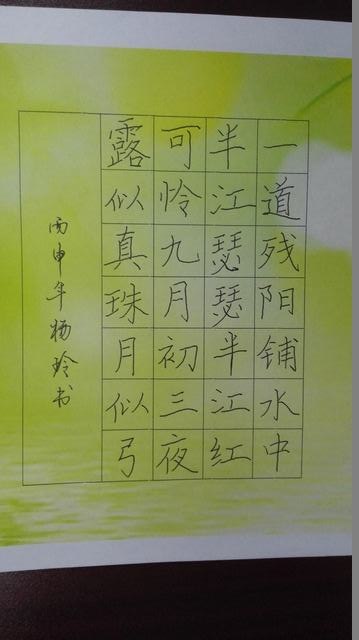 一道残阳铺水中
半江瑟瑟半江红
可怜九月初三夜
露似真珠月似弓
丙申年杨玲书